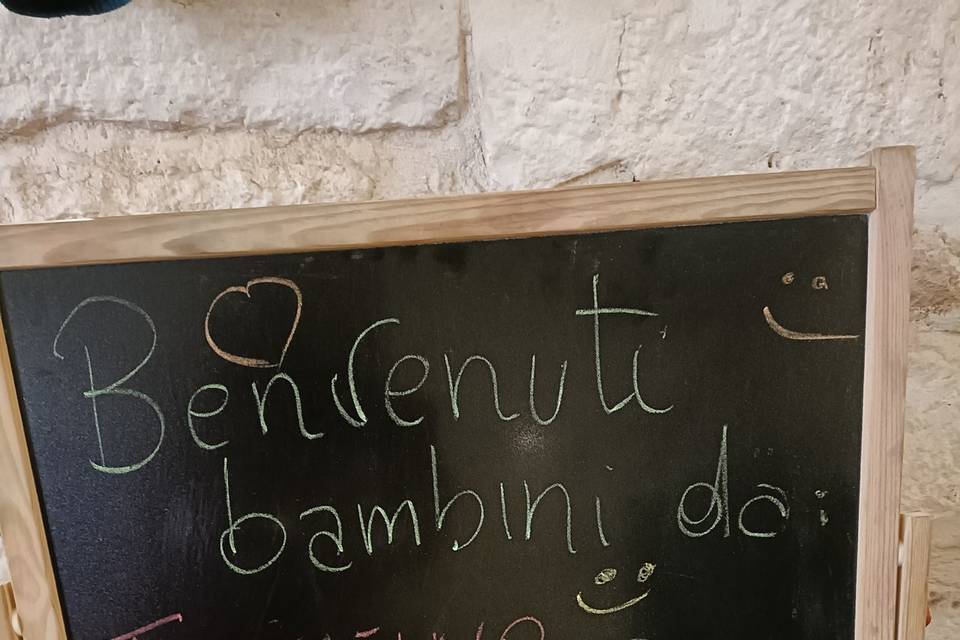 Benvenuti
bambini da: